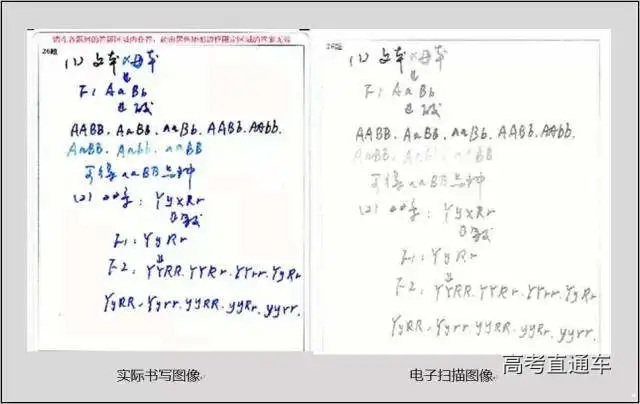 请在各题目的答题区域内作答，超出黑色矩形边框限定区域的答案无效
26题
(1) 父本 × 母本
↓
F1 AaBb
AABB. AaBB. aaBb. AABb. AAbb.
AaBB. Aabb. aaBB
可得 aaBB 品种
(2) YyxRr
F1: YyRr
F2: YYRR. YYRr. YYrr. YyRr
YyRR. Yyrr. yyRR. yyRr. yyrr.
实际书写图像
26题
(1) 父本 × 母本
↓
F1 AaBb
AABB. AaBB. aaBb. AABb. AAbb.
AaBB. Aabb. aaBB
可得 aaBB 品种
(2) YyxRr
F1: YyRr
F2: YYRR. YYRr. YYrr. YyRr
YyRR. Yyrr yyRR. yyRr. yyrr.
电子扫描图像
高考直通车